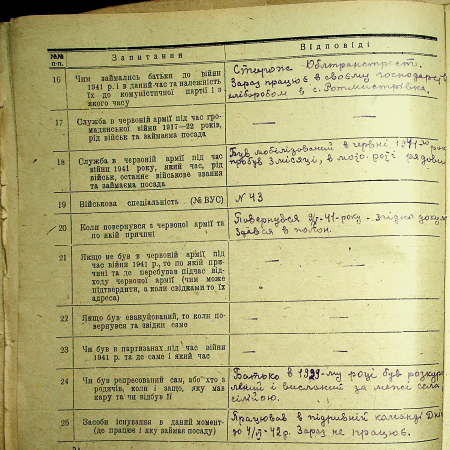 №№ п-п.
Запитання
Відповіді
16
Чим займались батьки до війни
1941 р. і в даний час та належність
їх до комуністичної партії і з
якого часу
Сторож Облтрансгрест.
Зараз працює в своєму господарств
хліборобом в с. Ротмистрівка.
17
Служба в червоній армії під час гро-
мадянської війни 1917—22 років,
рід військ та займаєма посада
—
18
Служба в червоній армії під час
війни 1941 року, який час, рід
військ, останнє військове звання
та займаєма посада
Був мобілізований в червні 1941го рок
пробув 3 місяці, в мото. роті рядови
19
Військова спеціальність (№ ВУС)
N 43
20
Коли повернувся з червоної армії та
по якій причині
Повернувся -41-року - згідно докум
Здався в полон.
21
Якщо не був в червоній армії під
час війни 1941 р., то по якій при-
чині та де перебував підчас від-
ходу червоної армії (чим може
підтвердити, а коли свідками то їх
адреса)
— —
22
Якщо був евакуйований, то коли по-
вернувся та звідки саме
— —
23
Чи був в партизанах під час війни
1941 р. та де саме і який час
— —
24
Чи був репресований сам, або хто з
родичів, коли і защо, яку мав
кару та чи відбув її
Батько в 1929-му році був розкур
лений і висланий за межі села
сім'йою.
25
Засоби існування в даний момент
(де працює і яку займає посаду)
Працював в підривній команді
до 4/ -42р. Зараз не працює.